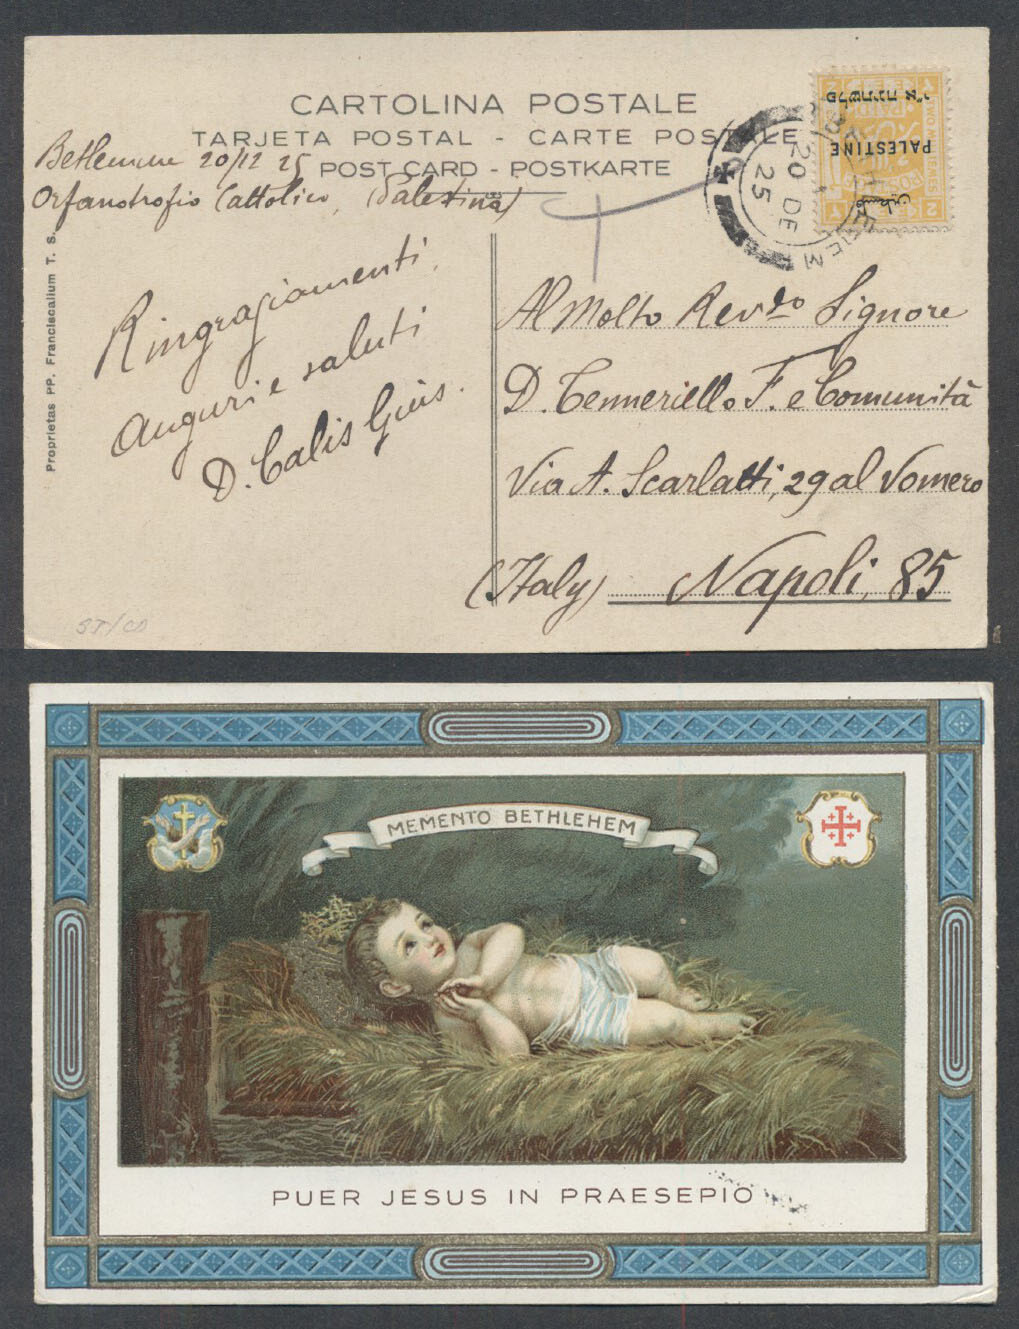 CARTOLINA POSTALE
TARJETA POSTAL - CARTE POSTALE
POST CARD - POSTKARTE
Betlemme 20/12 25
Orfanotrofio Cattolico, (Palestina)
Ringraziamenti,
auguri e saluti
D. Calis Gius.
Proprietas PP. Franciscalium T. S.
PALESTINE
פלשתינה א״י
فلسطين
20 DE
25
Al Molto Rev.do Signore
D. Tenneriello F. e Comunità
Via A. Scarlatti, 29 al Vomero
(Italy) Napoli, 85
ST/CD
MEMENTO BETHLEHEM
PUER JESUS IN PRAESEPIO